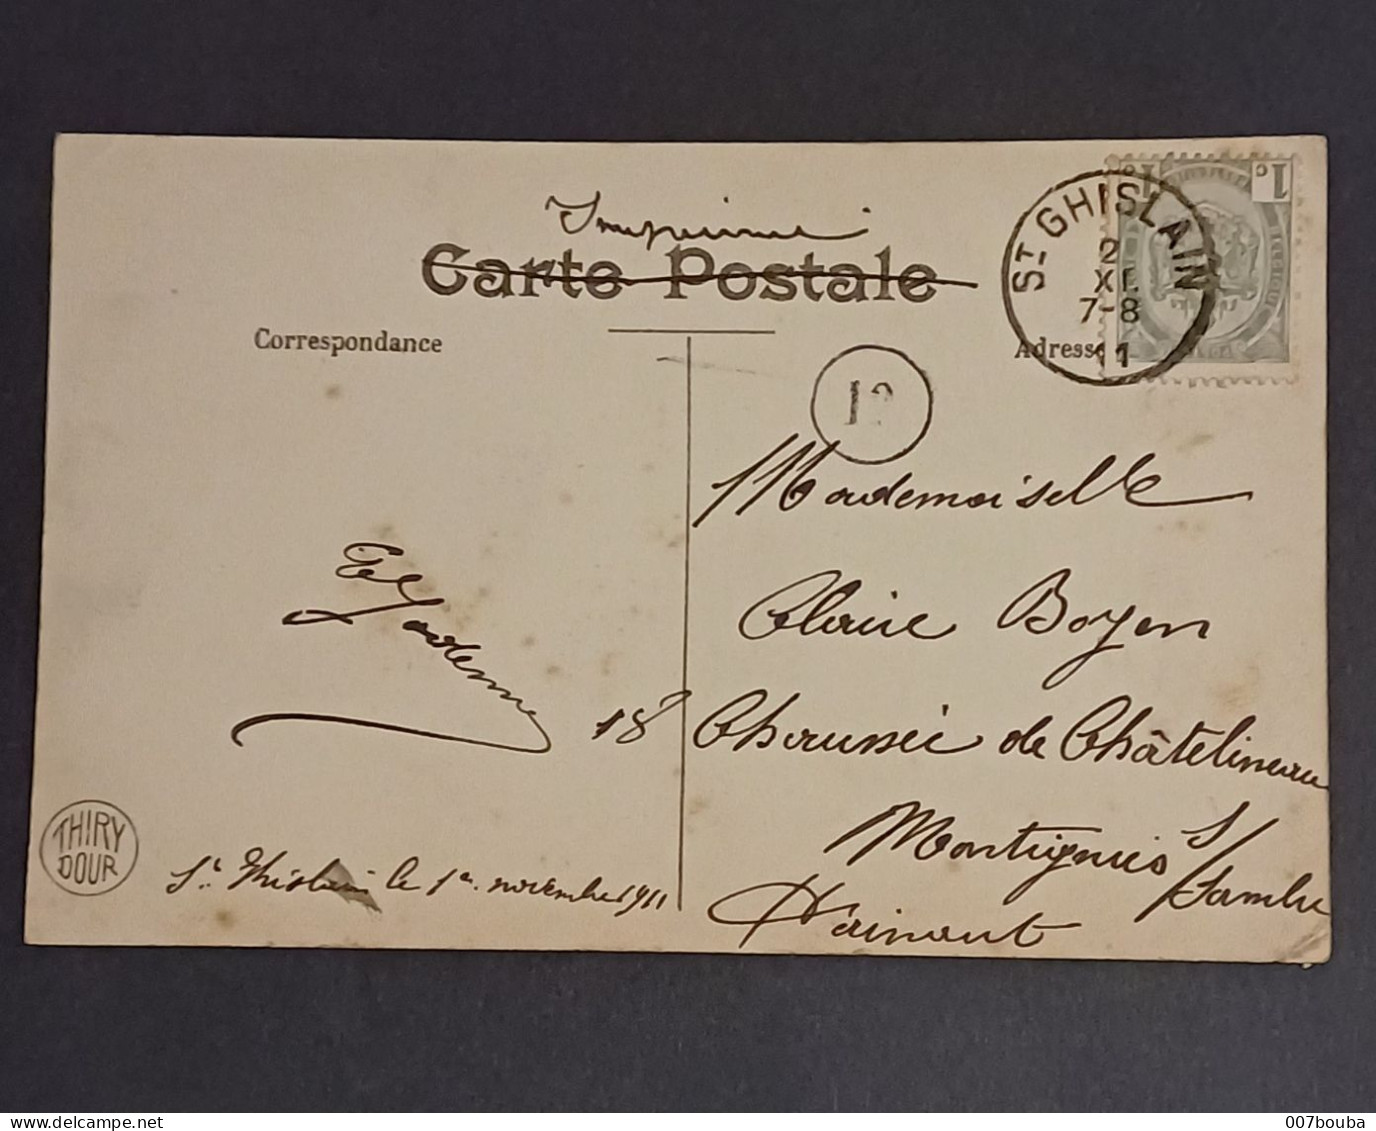 Imprimé
Carte Postale
Correspondance
Adresse
ST GHISLAIN
2
XI
7-8
11
1c
1c
12
Mademoiselle
Claire Boyen
18 Chaussée de Châtelineau
Montignies S/Sambre
Hainaut
THIRY
DOUR
St Ghislain le 1er novembre 1911
007bouba